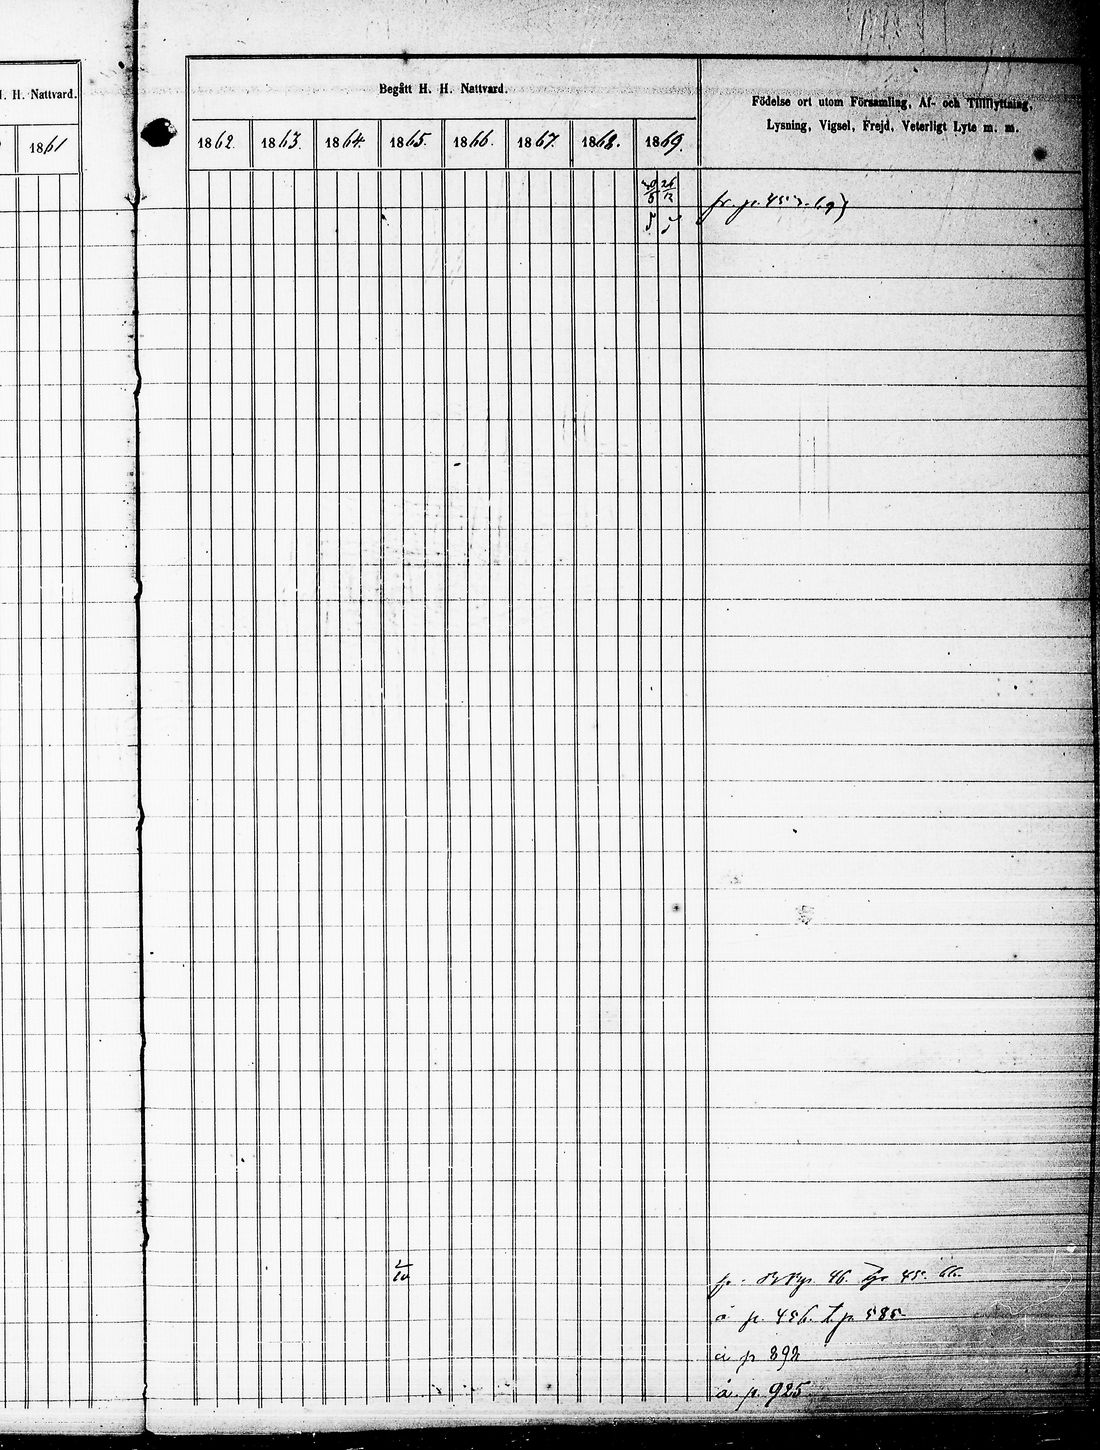 H. H. Nattvard.
1861
Begått H. H. Nattvard.
1862. 1863. 1864. 1865. 1866. 1867. 1868. 1869.
Födelse ort utom Församling, Af- och Tillflyttning,
Lysning, Vigsel, Frejd, Veterligt Lyte m. m.
fr. p.
2/10
fr. 46. 45. 66.
å p. 456. p. 585
å p 892
å p. 925